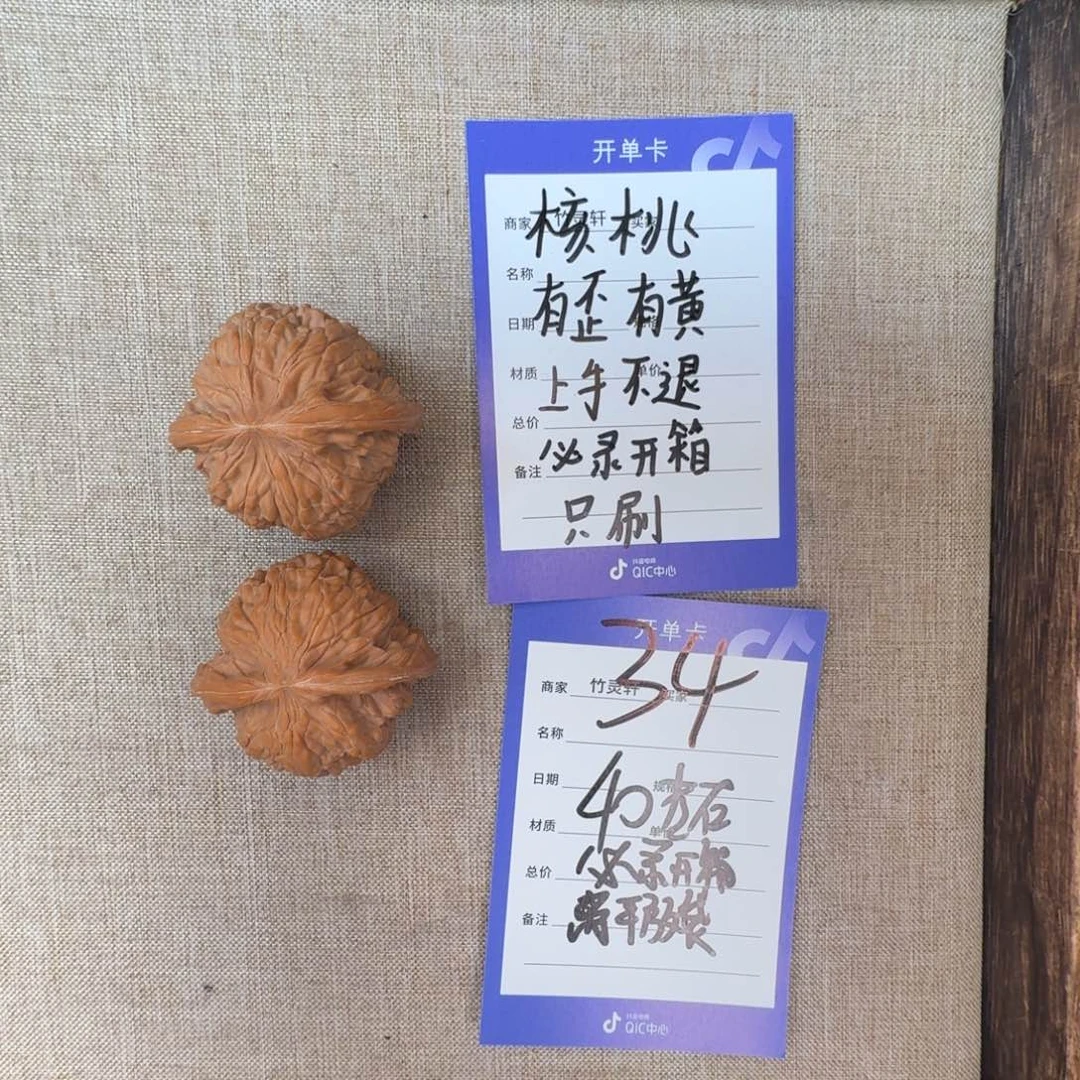 开单卡
商家 竹灵轩 买家
核桃
名称
有歪 有黄
日期
材质 单价
上手不退
总价
必录开箱
备注
只刷
抖音电商
QIC中心
开单卡
34
商家 竹灵轩 买家
名称
日期 规格
40方石
材质 单价
必录开箱
总价
备注
抖音电商
QIC中心